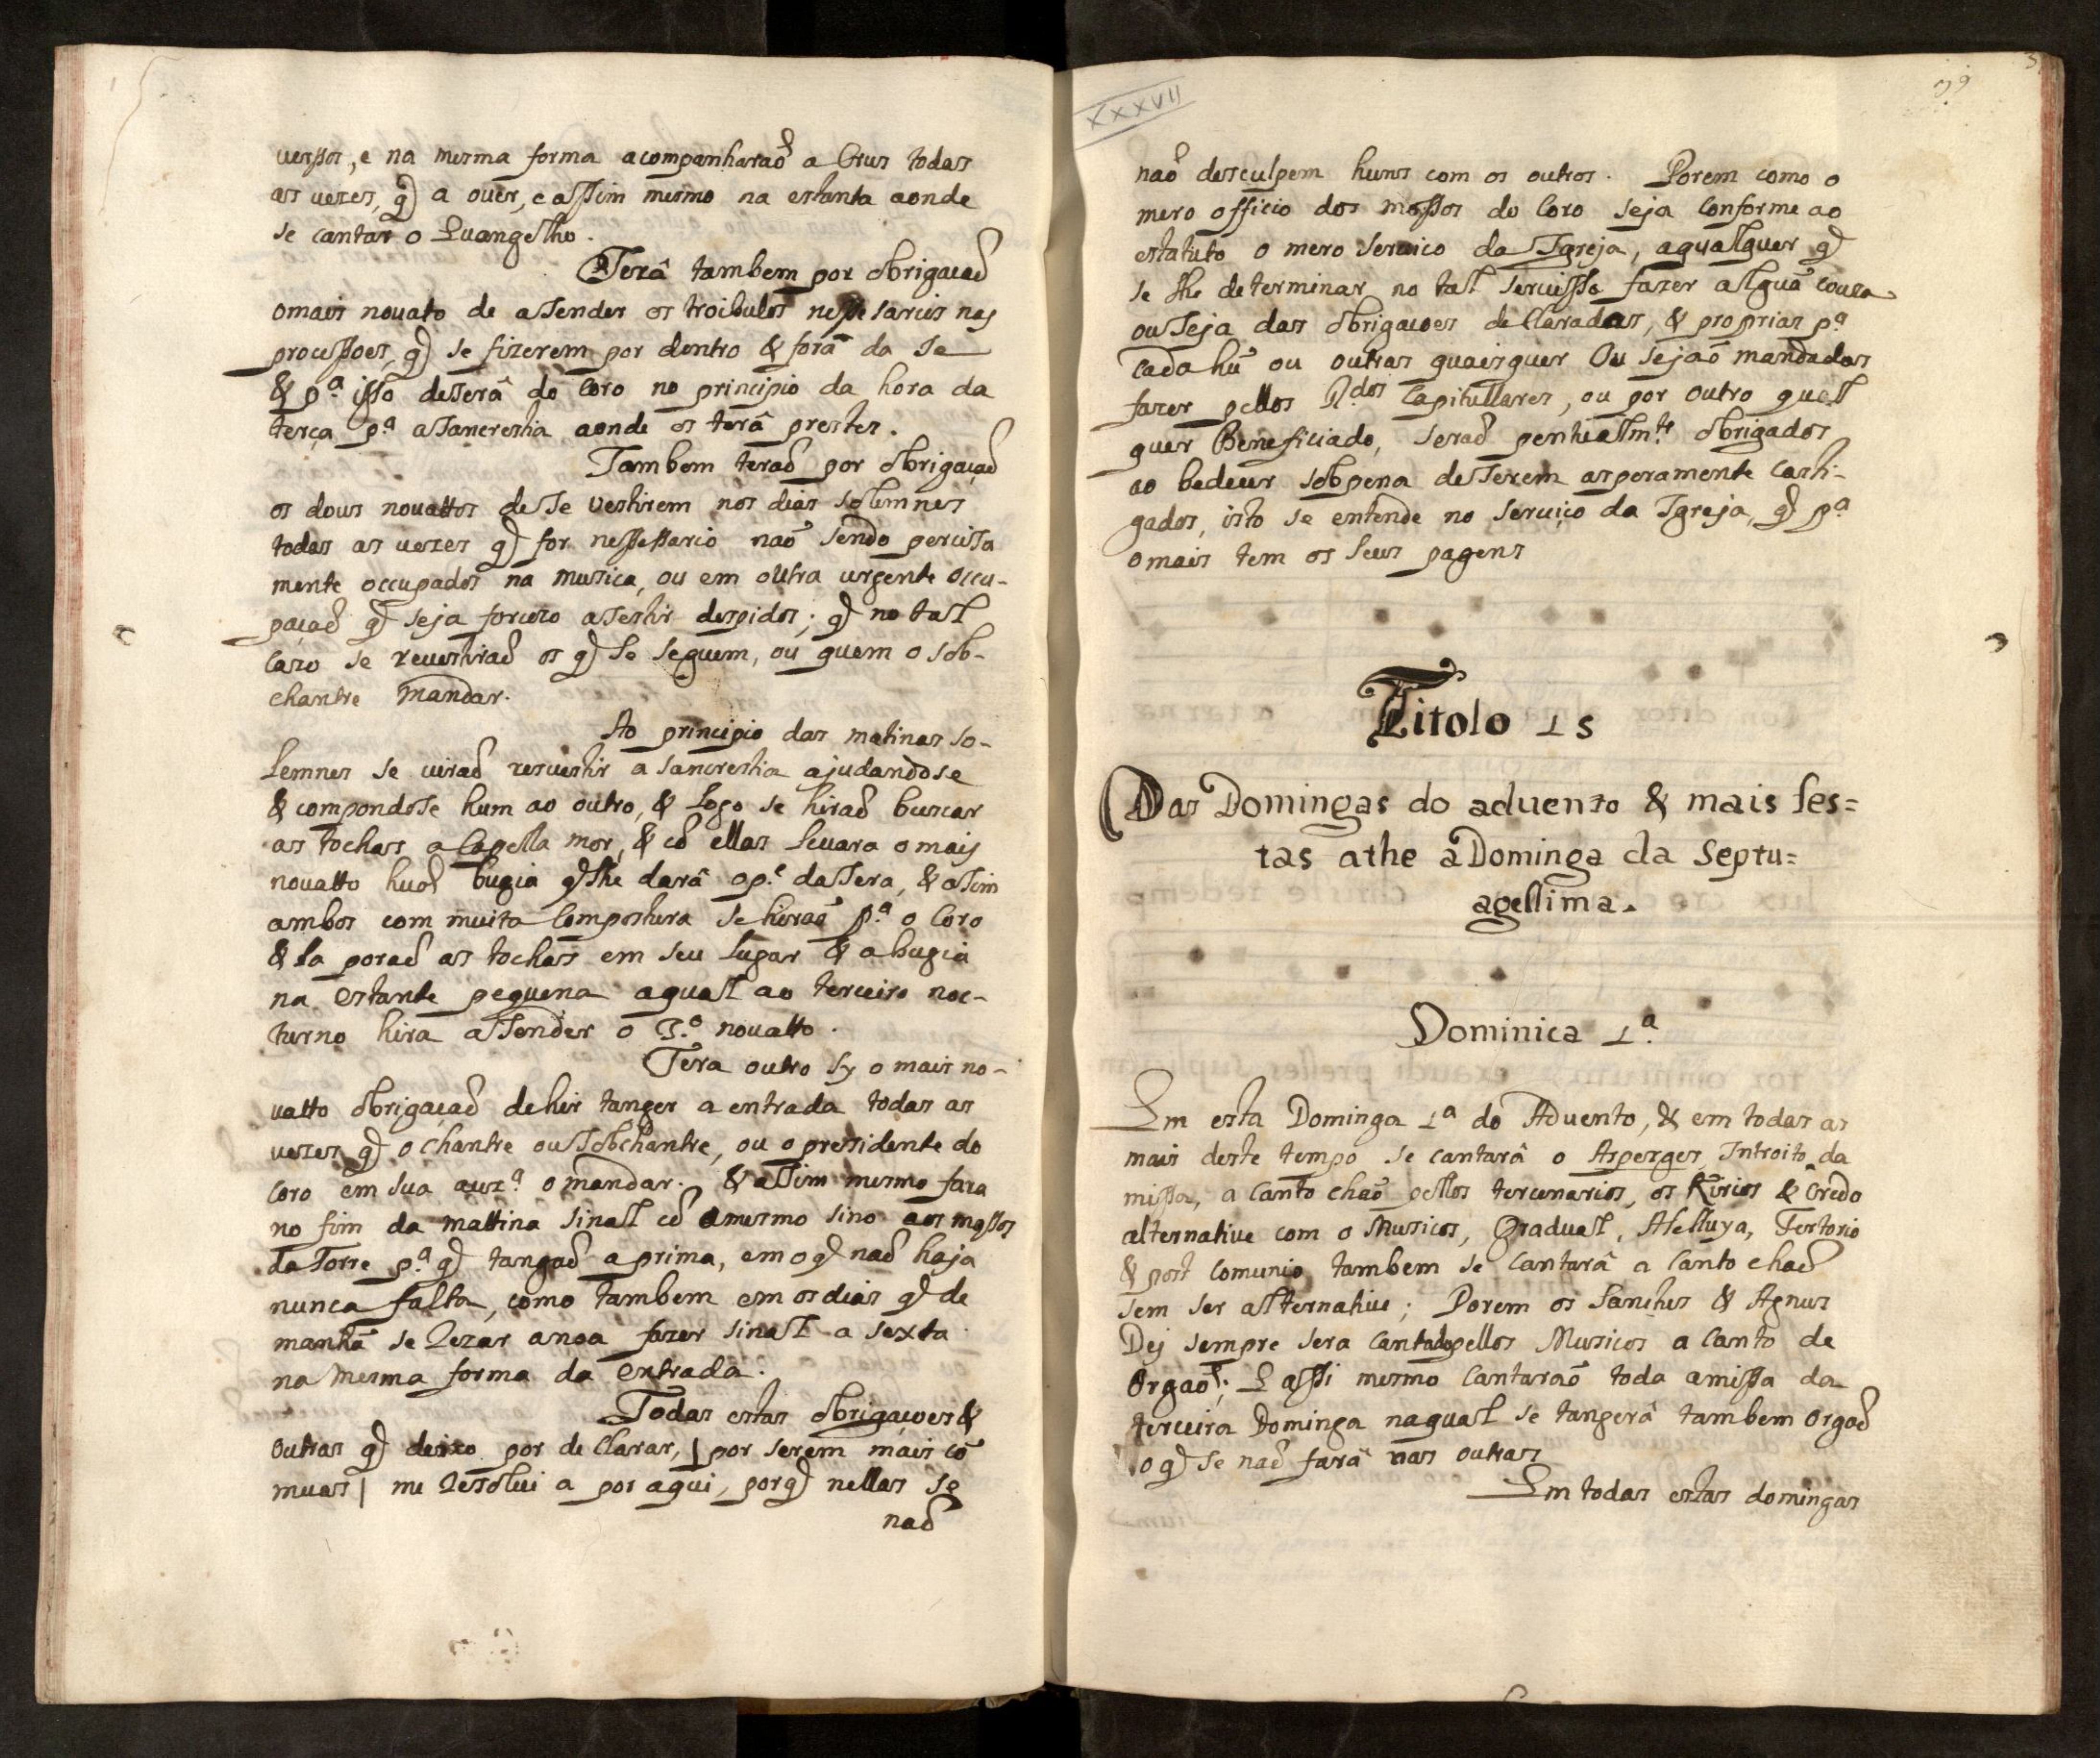 uersos, e na mesma forma acompanharaõ a Crus todas
as uezes, q̃ a ouer, e assim mesmo na estanta aonde
se cantar o Euangelho.
Terâ tambem por obrigacaõ
omais nouato de asender os troibulos nessesarios nas
procissoes, q̃ se fizerem por dentro & forâ da se
& p.ª isso deserâ do Coro no principio da hora da
terça p.ª asancrestia aonde os terâ prestes.
Tambem teraõ por obrigaçaõ
os dous nouattos dese vestirem nos dias solemnes
todas as uezes q̃ for nessessario naõ sendo percisa
mente occupados na musica, ou em outra urgente occu-
paçaõ q̃ seja forcozo asestir despidos; q̃ no tal
cazo se reuestiraõ os q̃ se seguem, ou quem o sob-
chantre mandar.
Ao principio das matinas so-
lemnes se uiraõ resuestir a sancrestia ajudandose
& compondose hum ao outro, & logo se hiraõ buscar
as tochas a Capella mor, & cõ ellas leuara o mais
nouatto huã bugia q̃ lhe darâ o p.e dasera, & asim
ambos com muita Compostura se hiraõ p.ª o Coro
& la poraõ as tochas em seu lugar & a bugia
na estante pequena aqual ao terceiro noc-
turno hira asender o 3.º nouatto.
Tera outro sy o mais no-
uatto obrigaçaõ dehir tanger a entrada todas as
uezes q̃ o chantre ou sobchantre, ou o presidente do
Coro em sua auz.ª o mandar. & assim mesmo fara
no fim da mattina sinal cõ o mesmo sino aos mossos
da Torre p.ª q̃ tangaõ a prima, em o q̃ naõ haja
nunca falta, como tambem em os dias q̃ de
manhã se Rezar anoa fazer sinal a sexta
na mesma forma da entrada.
Todas estas obrigaçoes &
outras q̃ deixo por de Clarar, | por serem mais cõ
muas | me Resolui a por aqui, porq̃ nellas se
naõ
XXXVII
39
naõ desculpem huns com os outros. Porem como o
mero officio dos mossos do Coro seja Conforme ao
estatuto o mero seruico da Igreja, aqualquer q̃
se lhe determinar no tal seruisso fazer algũa couza
ou seja das obrigacoes de Claradas, & proprias p.ª
cada hũ ou outras quaisquer Ou sejaõ mandadas
fazer pellos R.dos Capitullares, ou por outro qual
quer Beneficiado, seraõ pontualm.te obrigados
ao bedecer sobpena deserem asperamente Casti-
gados, isto se entende no seruiço da Igreja, q̃ p.ª
omais tem os seus pagens
Titolo 15
Das Domingas do aduento & mais fes=
tas athe a Dominga da Septu=
agessima.
Dominica 1.ª
Em esta Dominga 1.ª do Aduento, & em todas as
mais deste tempo se cantarâ o Asperges, Introito da
missa, a Canto chaõ pellos tercenarios, os Kirios & Credo
alternatiue com o Musicos, Gradual, Alelluya, Fertorio
& post Comunio tambem se Cantarâ a Canto chaõ
sem ser alternatiue; Porem os Sanctus & Agnus
Dej sempre sera Cantado pellos Musicos a Canto de
Orgaõ; E assi mesmo Cantaraõ toda amissa da
terceira Dominga naqual se tangerâ tambem Orgaõ
o q̃ se naõ farâ nas outras
Em todas estas domingas